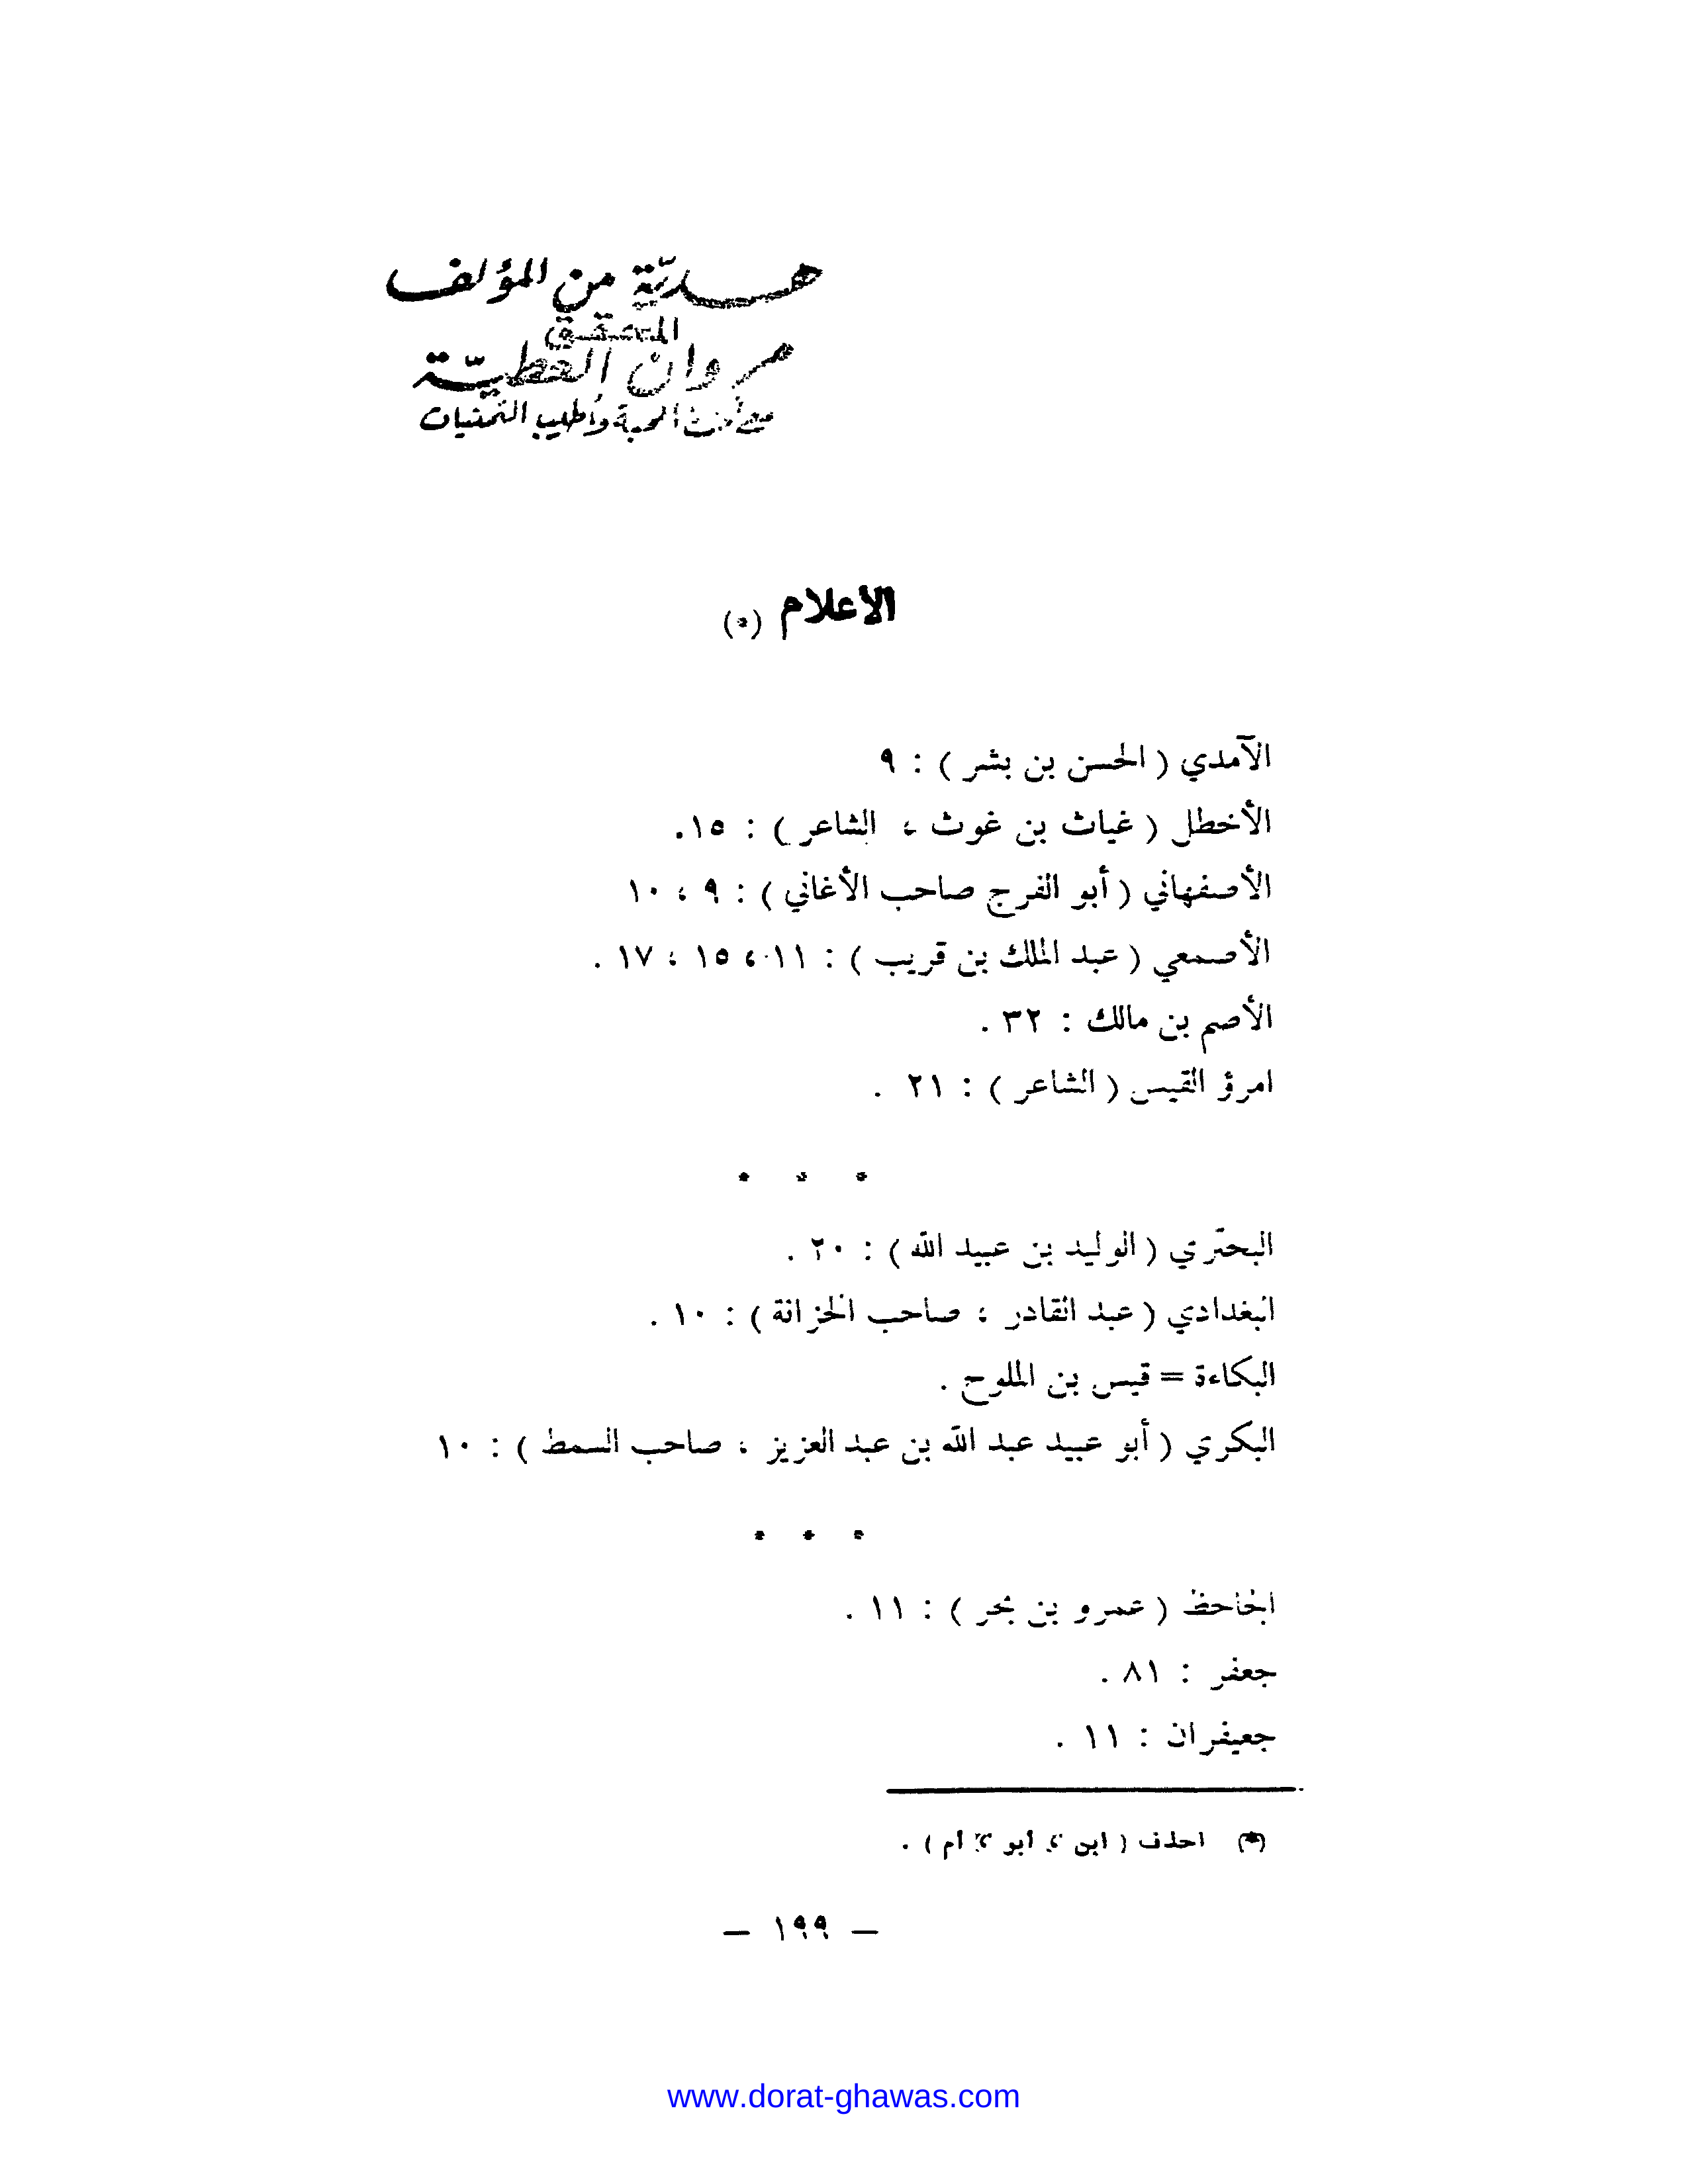 هديّة من المؤلف
المحقق
مروان العطيّة
مع المحبة وأطيب التمنيات
الأعلام (*)
الآمدي ( الحسن بن بشر ) : ٩
الأخطل ( غياث بن غوث ، الشاعر ) : ١٥.
الأصفهاني ( أبو الفرج صاحب الأغاني ) : ٩ ، ١٠
الأصمعي ( عبد الملك بن قريب ) : ١١ ، ١٥ ، ١٧ .
الأصم بن مالك : ٣٢ .
امرؤ القيس ( الشاعر ) : ٢١ .
* * *
البحتري ( الوليد بن عبيد الله ) : ٢٠ .
البغدادي ( عبد القادر ، صاحب الخزانة ) : ١٠ .
البكاءة = قيس بن الملوح .
البكري ( أبو عبيد عبد الله بن عبد العزيز ، صاحب السمط ) : ١٠
* * *
الجاحظ ( عمرو بن بحر ) : ١١ .
جعفر : ٨١ .
جعيفران : ١١ .
(*) احذف ( ابن ، أبو ، أم ) .
– ١٩٩ –
www.dorat-ghawas.com